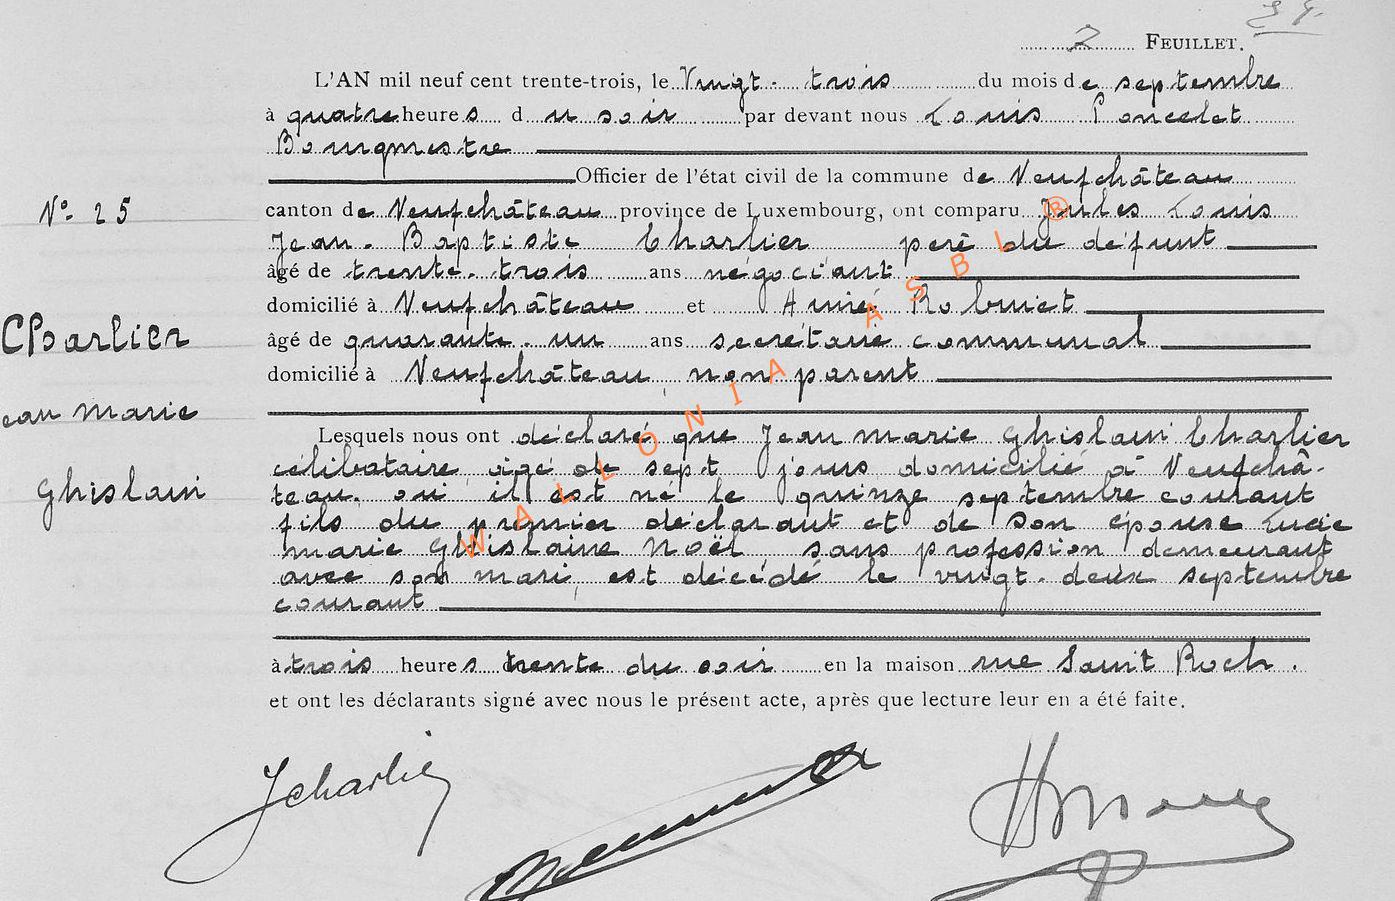 2 FEUILLET.
L'AN mil neuf cent trente-trois, le Vingt-trois du mois de septembre
à quatre heures du soir par devant nous Louis Poncelet
Bourgmestre
Officier de l'état civil de la commune de Neufchâteau
N° 25
canton de Neufchâteau province de Luxembourg, ont comparu Jules Louis
Jean-Baptiste Charlier père du défunt
âgé de trente-trois ans négociant
domicilié à Neufchâteau et Aimé
Charlier
âgé de quarante-un ans secrétaire communal
domicilié à Neufchâteau, non parent
ean Marie
Lesquels nous ont déclaré que Jean Marie Ghislain Charlier
célibataire âgé de sept jours domicilié à Neufchâ-
Ghislain
teau où il est né le quinze septembre courant
fils du premier déclarant et de son épouse Lucie
Marie Ghislaine Noël sans profession demeurant
avec son mari, est décédé le vingt-deux septembre
courant
à trois heures trente du soir en la maison rue Saint Roch.
et ont les déclarants signé avec nous le présent acte, après que lecture leur en a été faite.
JCharlier
WALLONIA ASBL ®